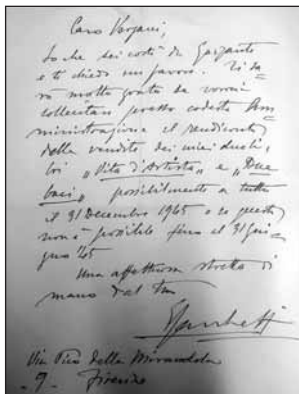 Caro Vergani,
So che sei costì da Garzanti
e ti chiedo un favore. Ti sa-
rò molto grato se vorrai
sollecitare presso codesta Am
ministrazione il rendiconto
della vendita dei miei due li,
bri "Vita d'Artista" e "Due
baci" possibilmente a tutto
il 31 Decembre 1965 o se questo
non è possibile fino al 31 Giu-
gno 65
Una affettuosa stretta di
mano dal tuo
Via Pico della Mirandola
- 9 - Firenze